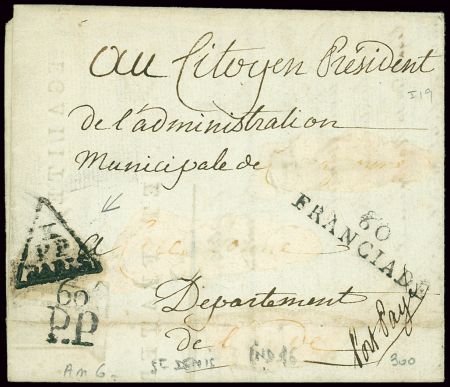 au Citoyen Président
I19
de l'administration
Municipale de
60
FRANCIADE
a
P.P
PARIS
60
P.P
Département
de l'
Port Payé
An 6
ST DENIS
IND 16
300